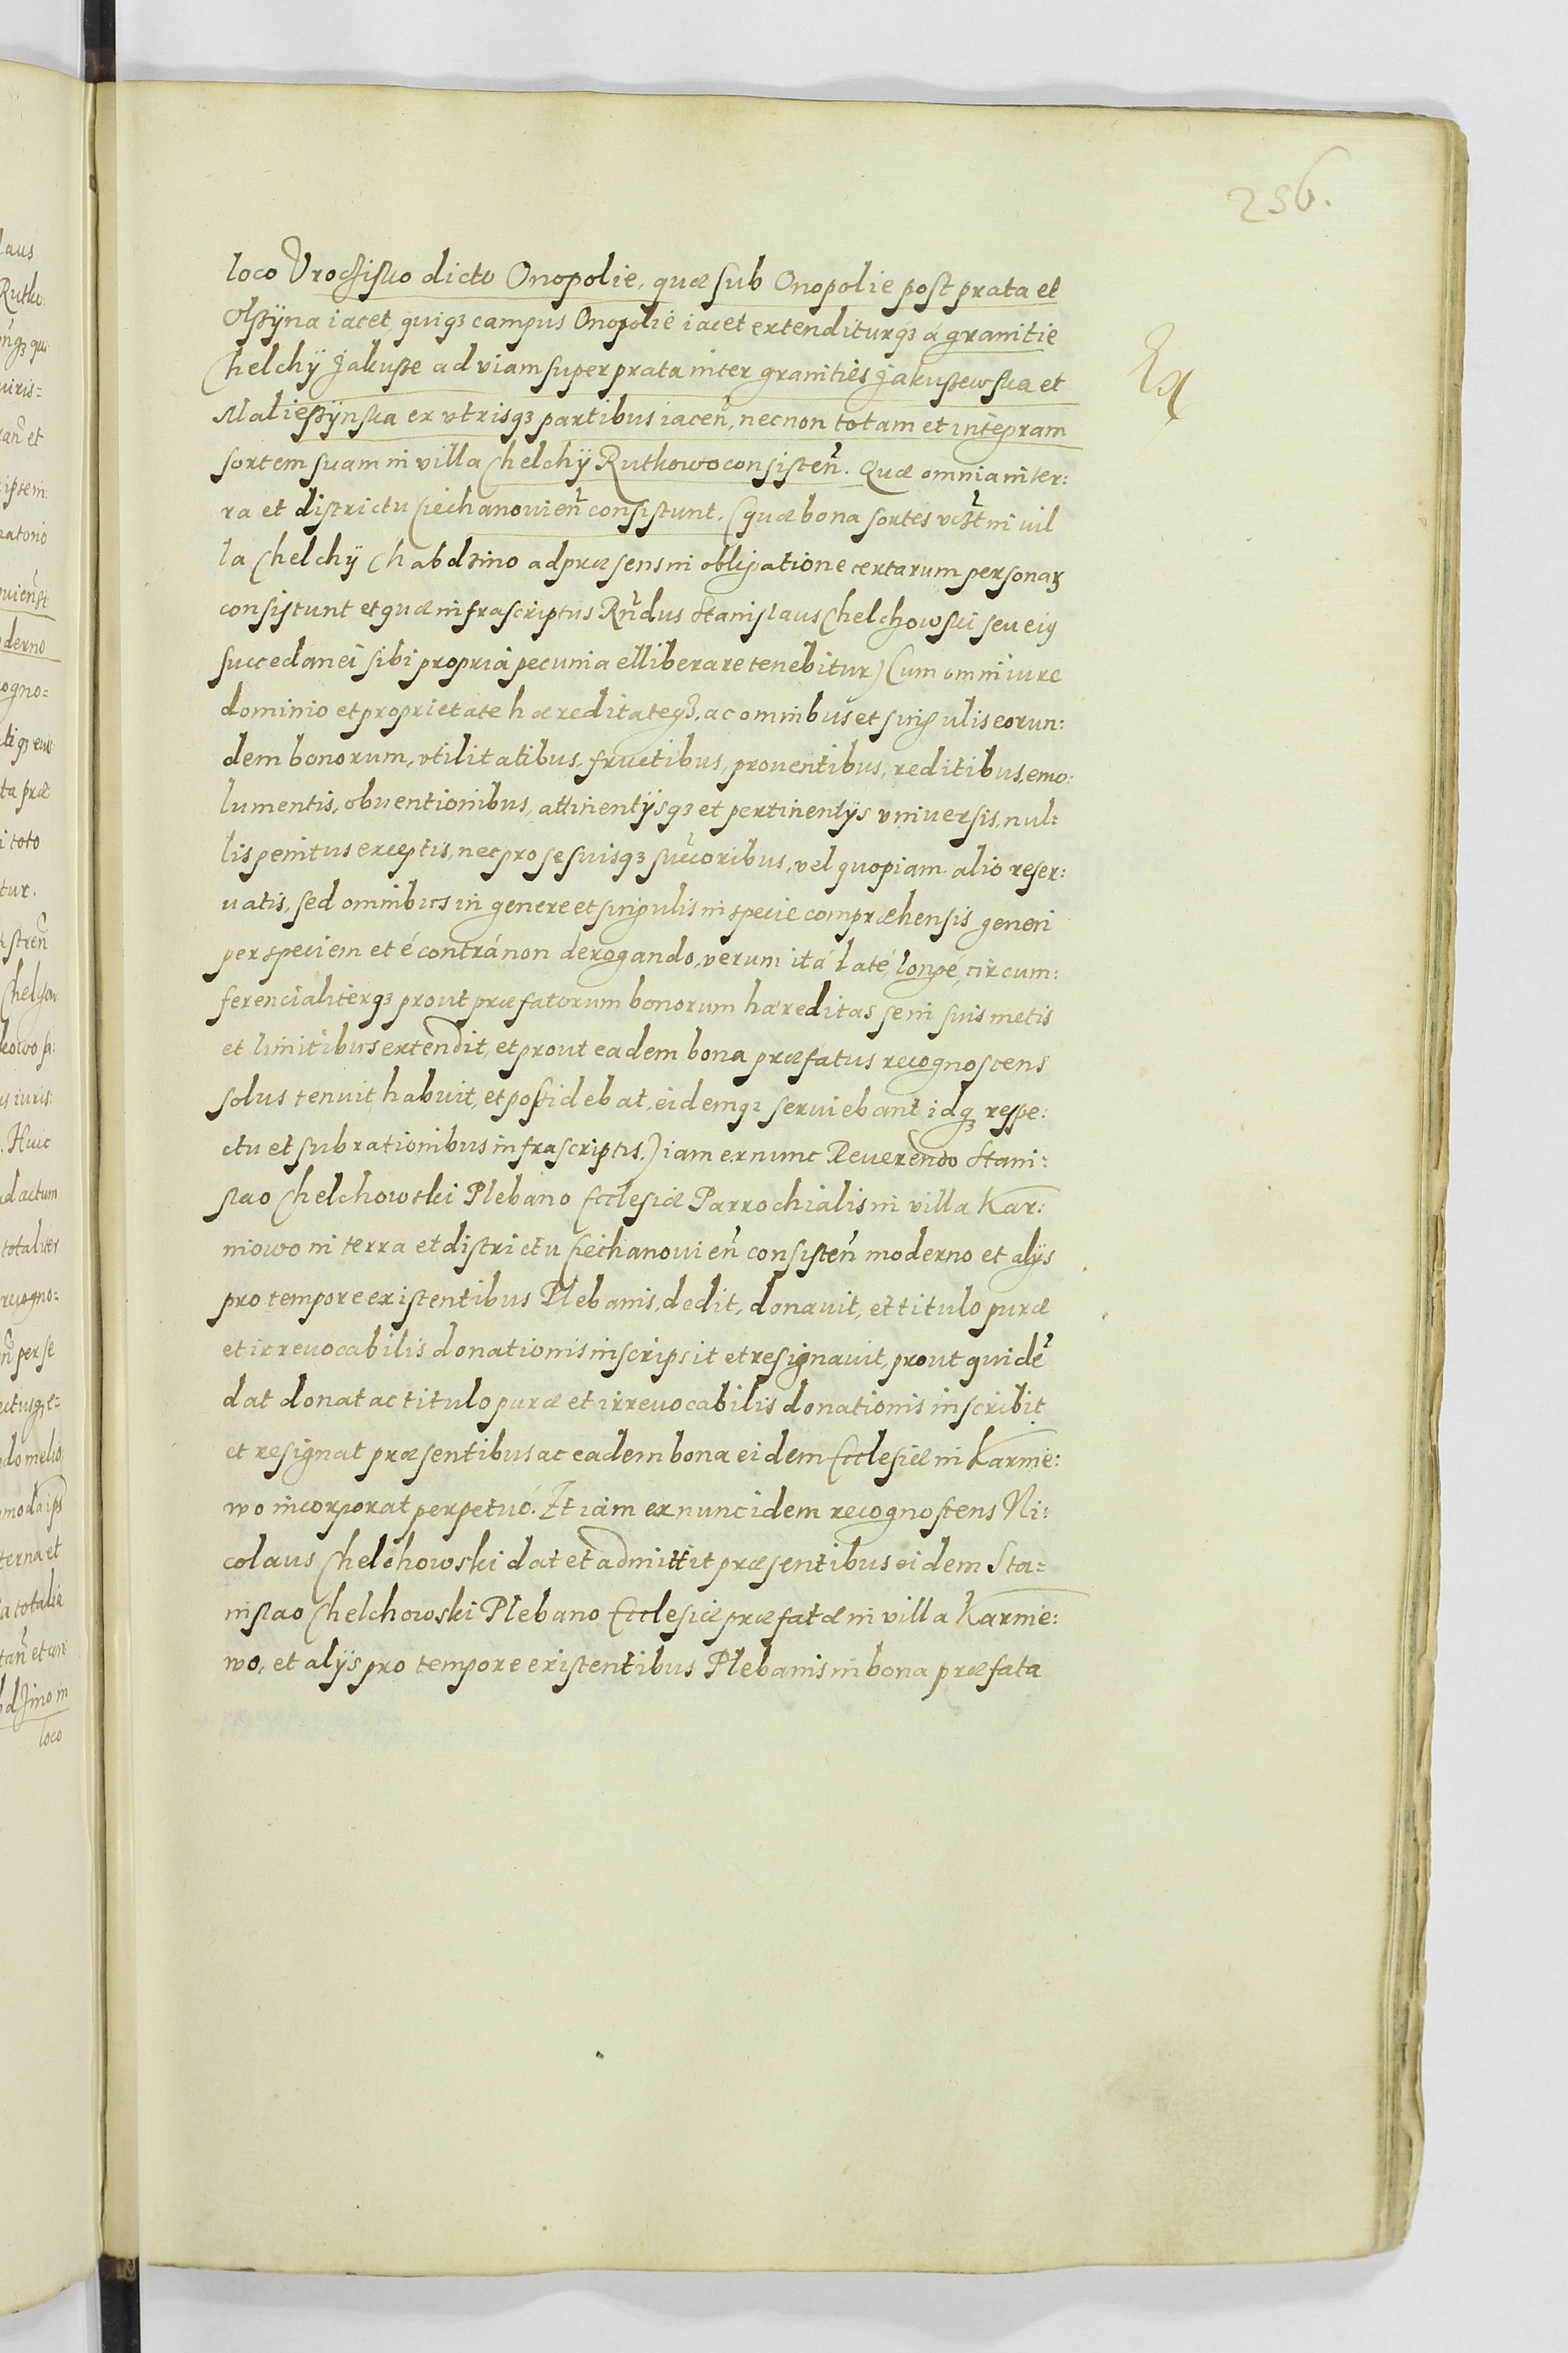 256.
loco Vroczisko dicto Onopolie, quæ sub Onopolie post prata et
Olßÿna iacet, quiqꝫ campus Onopolie iacet extenditurqꝫ á granitie
Chelchÿ Jakuße ad viam super prata inter granities Jakußewska et
Maließÿnska ex vtrisqꝫ partibus iaceñ, necnon totam et integram
sortem suam in villa Chelchÿ Rutkowo consisteñ. Quæ omnia in ter:
ra et districtu Ciechanouieñ consistunt. (quæ bona sortes vcꝫt in vil
la Chelchÿ Chabdzino ad præsens in obligatione certarum personaꝝ
consistunt et quæ infrascriptus Rñdus Stanislaus Chelchowski seu eiꝯ
succedanei sibi propriá pecunia elliberare tenebitur) Cum omni iure
dominio et proprietate hæreditateqꝫ, ac omnibus et singulis eorun:
dem bonorum, vtilitatibus, fructibus, prouentibus, reditibus, emo:
lumentis, obuentionibus, attinentÿsqꝫ et pertinentÿs vniuersis, nul:
lis penitus exceptis, nec pro se suisqꝫ succoribus, vel quopiam alio reser:
uatis, sed omnibus in genere et singulis in specie compræhensis generi
per speciem et é contrá non derogando, verum itá laté, longé, circum:
ferencialiterqꝫ prout præfatorum bonorum hæreditas se in suis metis
et limitibus extendit, et prout eadem bona præfatus recognoscens
solus tenuit habuit, et possidebat, eidemqꝫ seruiebant idqꝫ respe:
ctu et sub rationibus infrascriptis.) iam ex nunc Reuerendo Stani:
slao Chelchowski Plebano Ecclesiæ Parrochialis in villa Kar:
niowo in terra et districtu Ciechanouieñ consisteñ moderno et alÿs
pro tempore existentibus Plebanis, dedit, donauit, et titulo puræ
et irreuocabilis donationis inscripsit et resignauit, prout quidē
dat donat ac titulo puræ et irreuocabilis donationis inscribit
et resignat præsentibus ac eadem bona eidem Ecclesiæ in Karnie:
wo incorporat perpetuó. Et iam ex nunc idem recognoscens Ni:
colaus Chelchowski dat et admittit præsentibus eidem Sta=
nislao Chelchowski Plebano Ecclesiæ præfatæ in villa Karnie:
wo, et alÿs pro tempore existentibus Plebanis in bona præfata